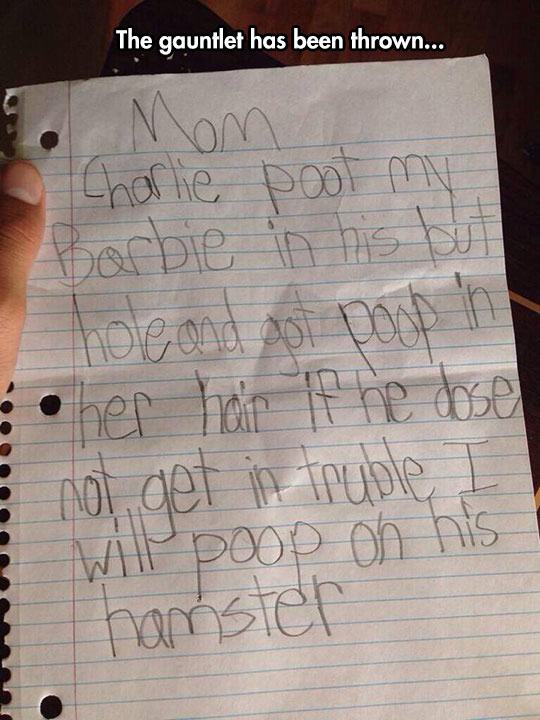 The gauntlet has been thrown...
Mom
Charlie poot my
Barbie in his but
hole and got poop in
her hair if he dose
not get in truble I
will poop on his
hamster